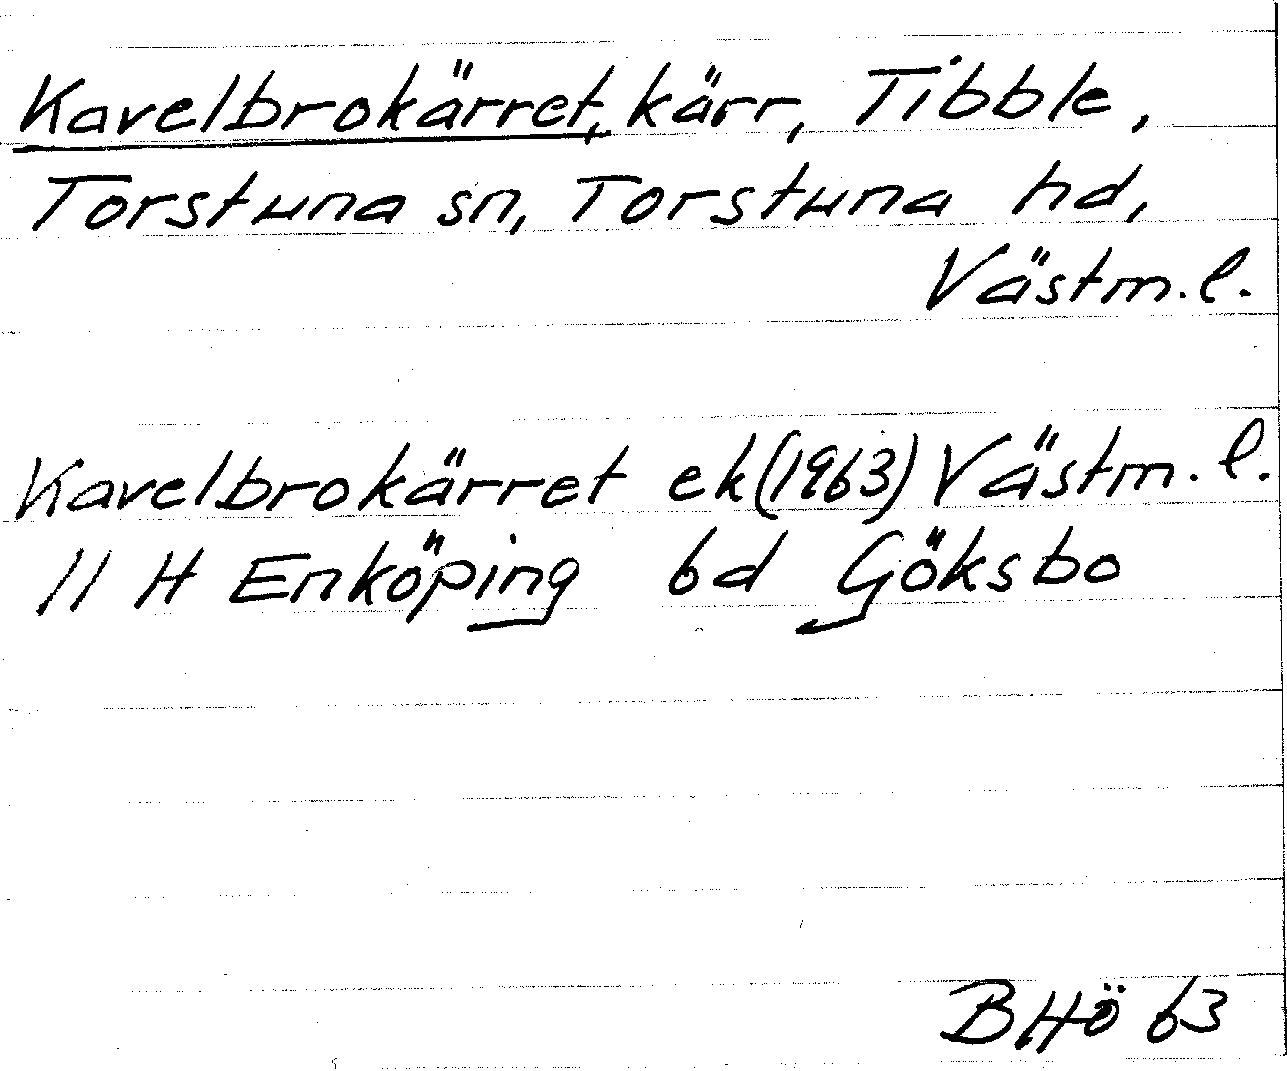 Kavelbrokärret, kärr, Tibble,
Torstuna sn, Torstuna hd,
Västm. l.
Kavelbrokärret ek (1963) Västm. l.
11 H Enköping 6d Göksbo
BHö 63